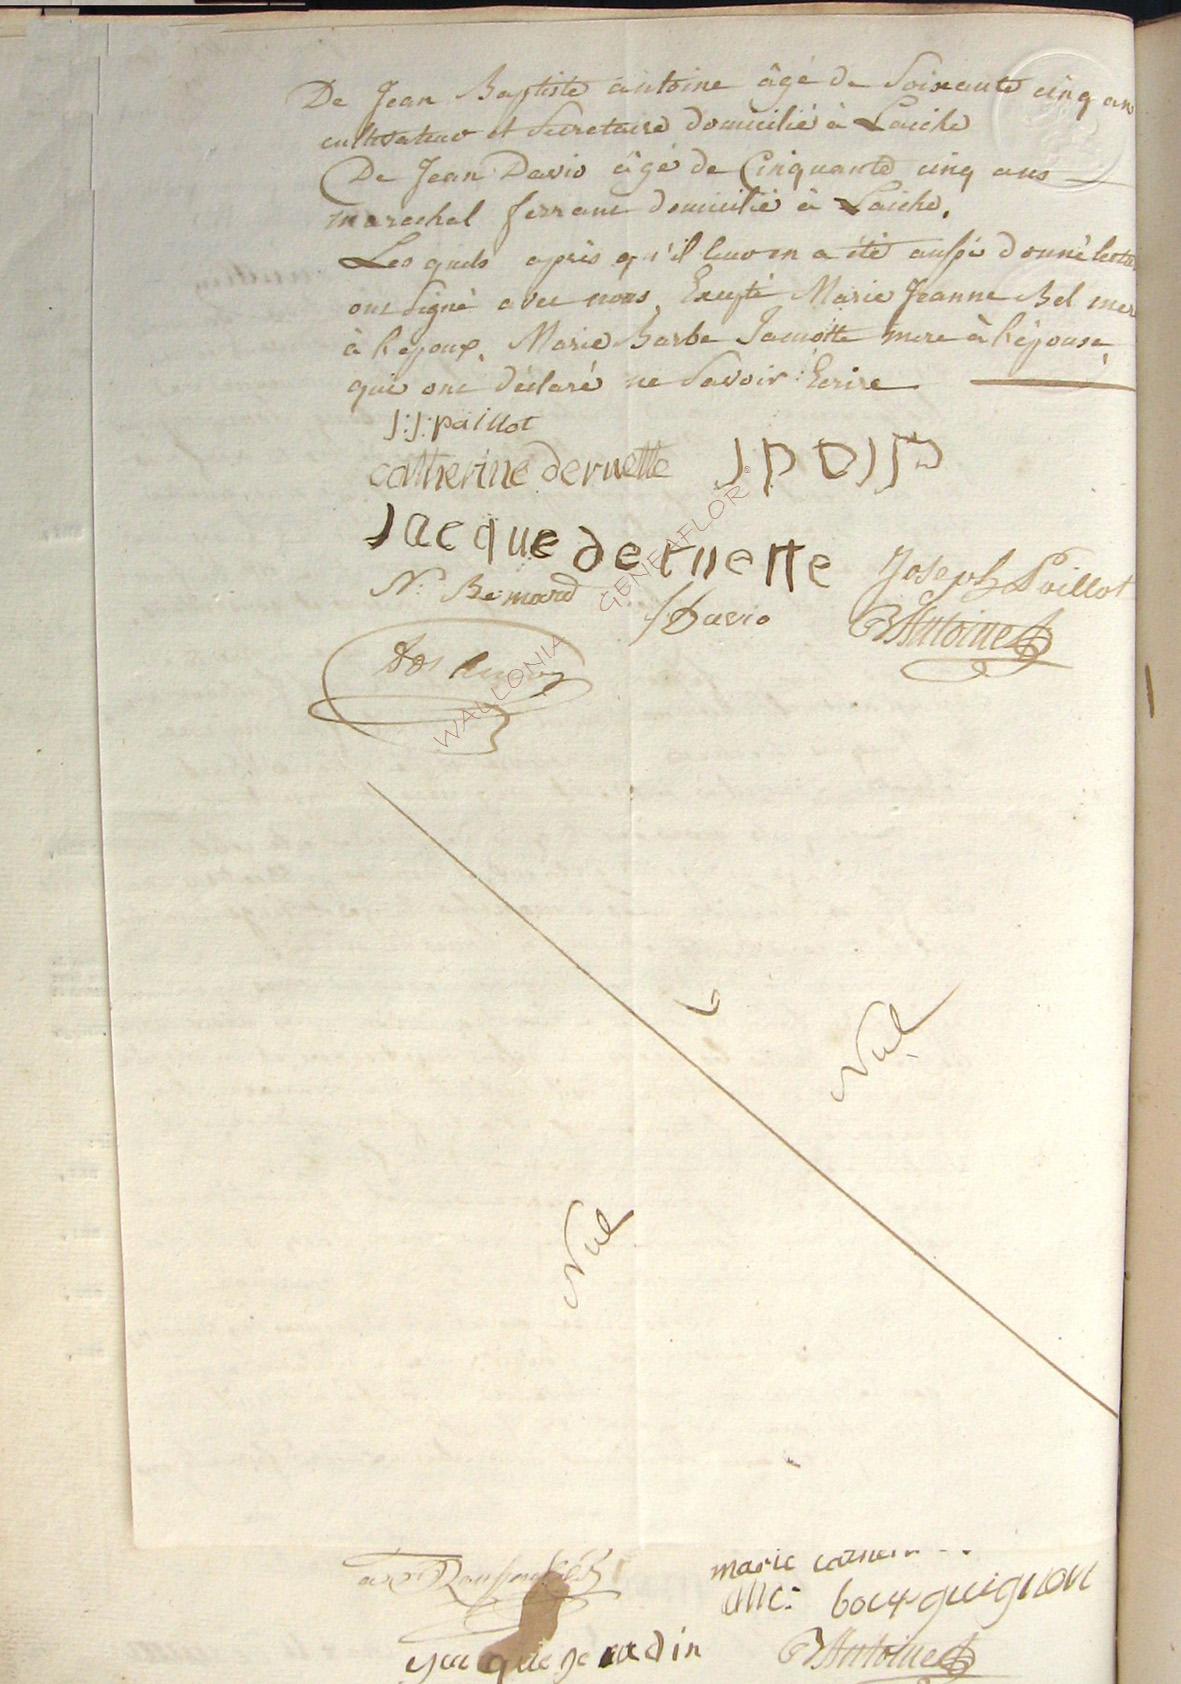 De Jean Baptiste antoine âgé de Soixante cinq ans
cultivateur et Secretaire domicilié à Laiche
De Jean David âgé de Cinquante cinq ans
marechal ferrant domicilié à Laiche.
Lesquels après qu'il leur en a été aussi donné lecture
ont signé avec nous, Excepté Marie Jeanne Bel mere
à l'époux, Marie Barbe Jamotte mere à l'épouse,
qui ont déclaré ne Savoir Ecrire
J:J: paillot
catherine deruette J P D
Jacque deruette Joseph Poillot
N: Bernard J David Antoine
WALLONIA GENEAFLOR
Nul
Nul
marie
bourguignon
Jacque Jeradin Antoine